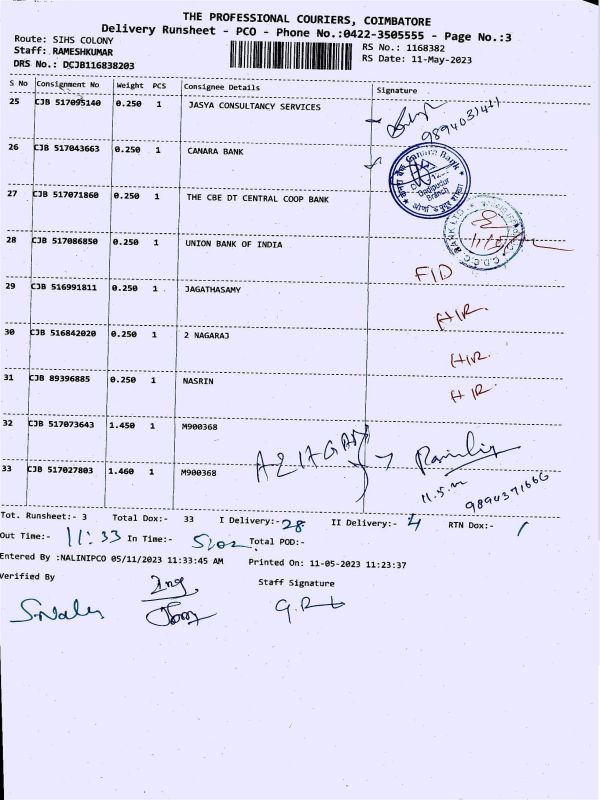 THE PROFESSIONAL COURIERS, COIMBATORE
Delivery Runsheet - PCO - Phone No.:0422-3505555 - Page No.:3
Route: SIHS COLONY
RS No.: 1168382
Staff: RAMESHKUMAR
RS Date: 11-May-2023
DRS No.: DCJB116838203
S No Consignment No Weight PCS Consignee Details Signature
25 CJB 517095140 0.250 1 JASYA CONSULTANCY SERVICES
9894031421
26 CJB 517043663 0.250 1 CANARA BANK
Canara Bank
Branch
27 CJB 517071860 0.250 1 THE CBE DT CENTRAL COOP BANK
28 CJB 517086850 0.250 1 UNION BANK OF INDIA
FID
29 CJB 516991811 0.250 1 JAGATHASAMY
HR
30 CJB 516842020 0.250 1 2 NAGARAJ
HR
31 CJB 89396885 0.250 1 NASRIN
HR
32 CJB 517073643 1.450 1 M900368
33 CJB 517027803 1.460 1 M900368
11.5.m
9894371666
Tot. Runsheet:- 3 Total Dox:- 33 I Delivery:- 28 II Delivery:- 4 RTN Dox:- 1
Out Time:- 11:33 In Time:- 5:02 Total POD:-
Entered By :NALINIPCO 05/11/2023 11:33:45 AM Printed On: 11-05-2023 11:23:37
Verified By Staff Signature